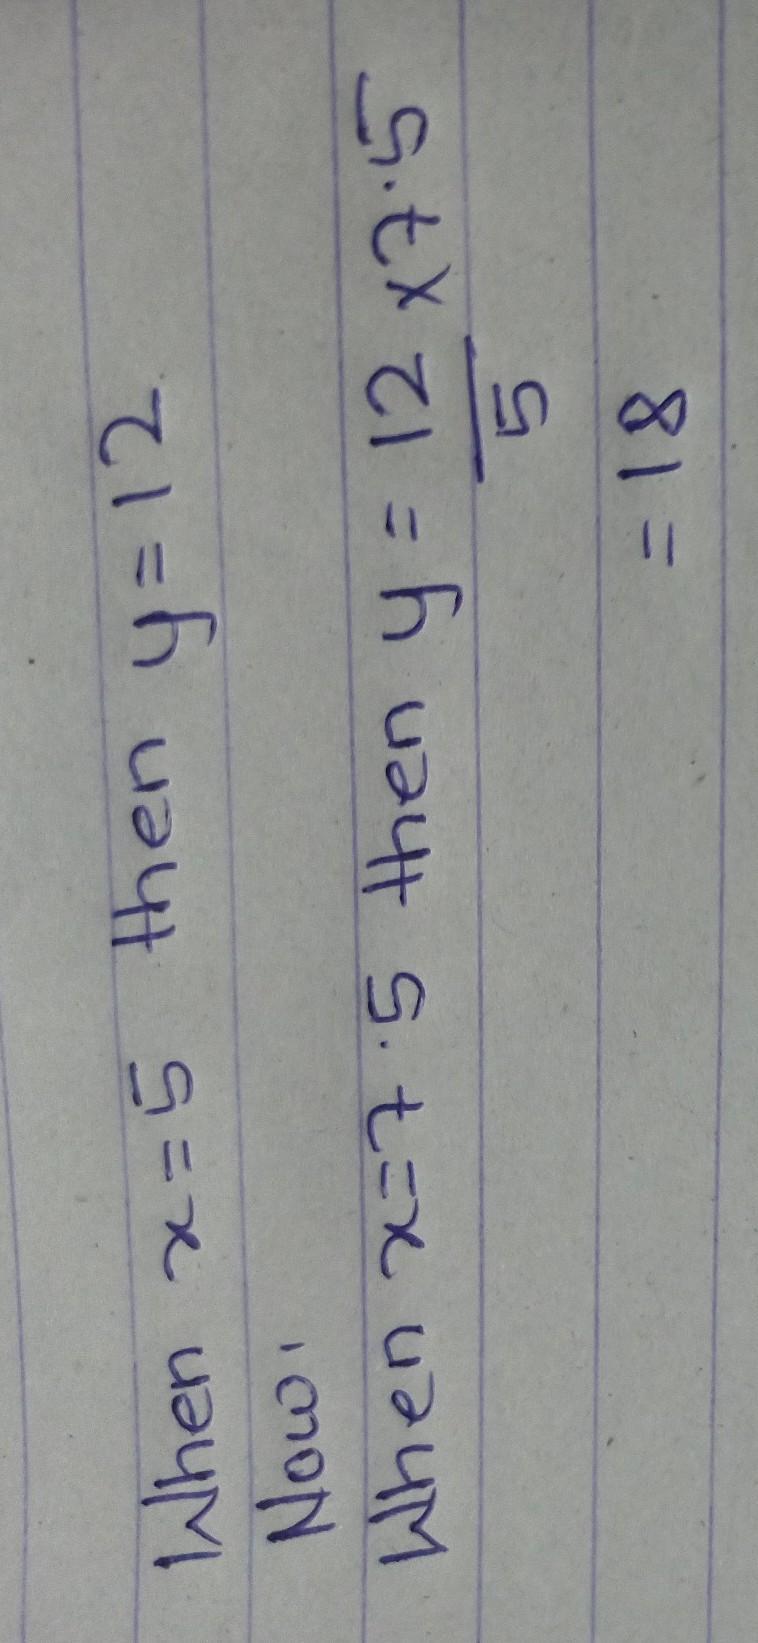 When x = 5 then y = 12
Now,
When x = 7.5 then y = 12 x 7.5
5
= 18